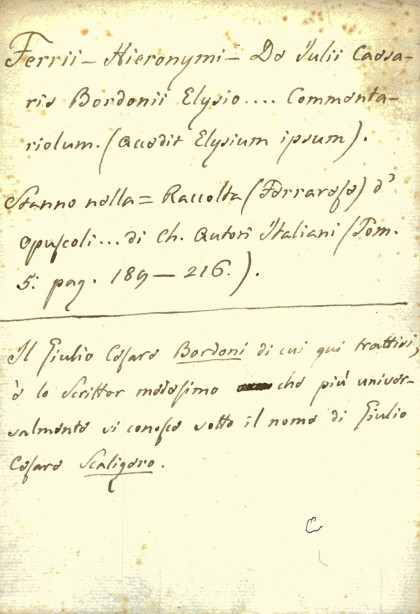 Ferrii – Hieronymi – De Iulii Caesa-
ris Bordonii Elysio.... Commenta-
riolum. (Accedit Elysium ipsum).
Stanno nella = Raccolta (Ferrarese) d'
Opuscoli... di Ch. Autori Italiani (Tom.
5: pag. 189 — 216.).
Il Giulio Cesare Bordoni di cui qui trattasi,
è lo Scrittor medesimo che più univer-
salmente si conosce sotto il nome di Giulio
Cesare Scaligero.